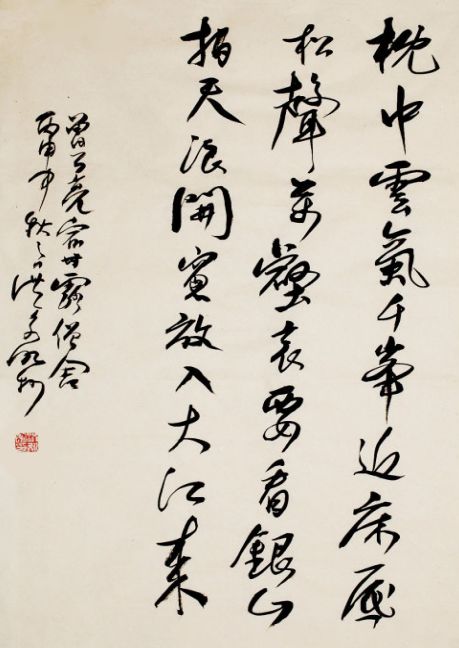 枕中雲氣千峯近床底
松聲萬壑哀要看銀山
拍天浪開窗放入大江來
曾公亮宿甘露僧舍
丙申年秋日洪